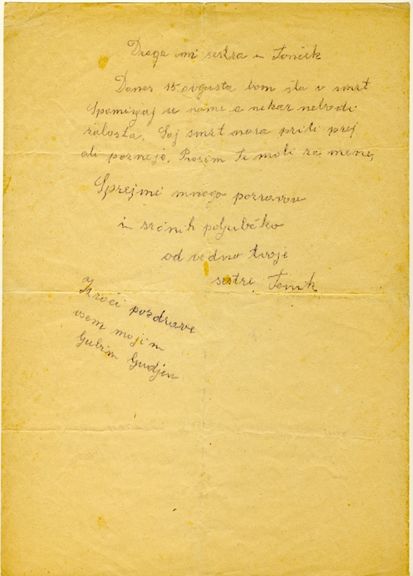 Draga mi sestra in Tonček
Danes 15 avgusta bom šla v smrt
Spominjaj se name a nikar nebodi
žalosta. Saj smrt mora priti prej
ali pozneje. Prosim te moli za mene,
Sprejmi mnogo pozdravov
in srčnih poljubčko
od vedno tvoje
sestre
Izroči pozdrave
vsem mojim